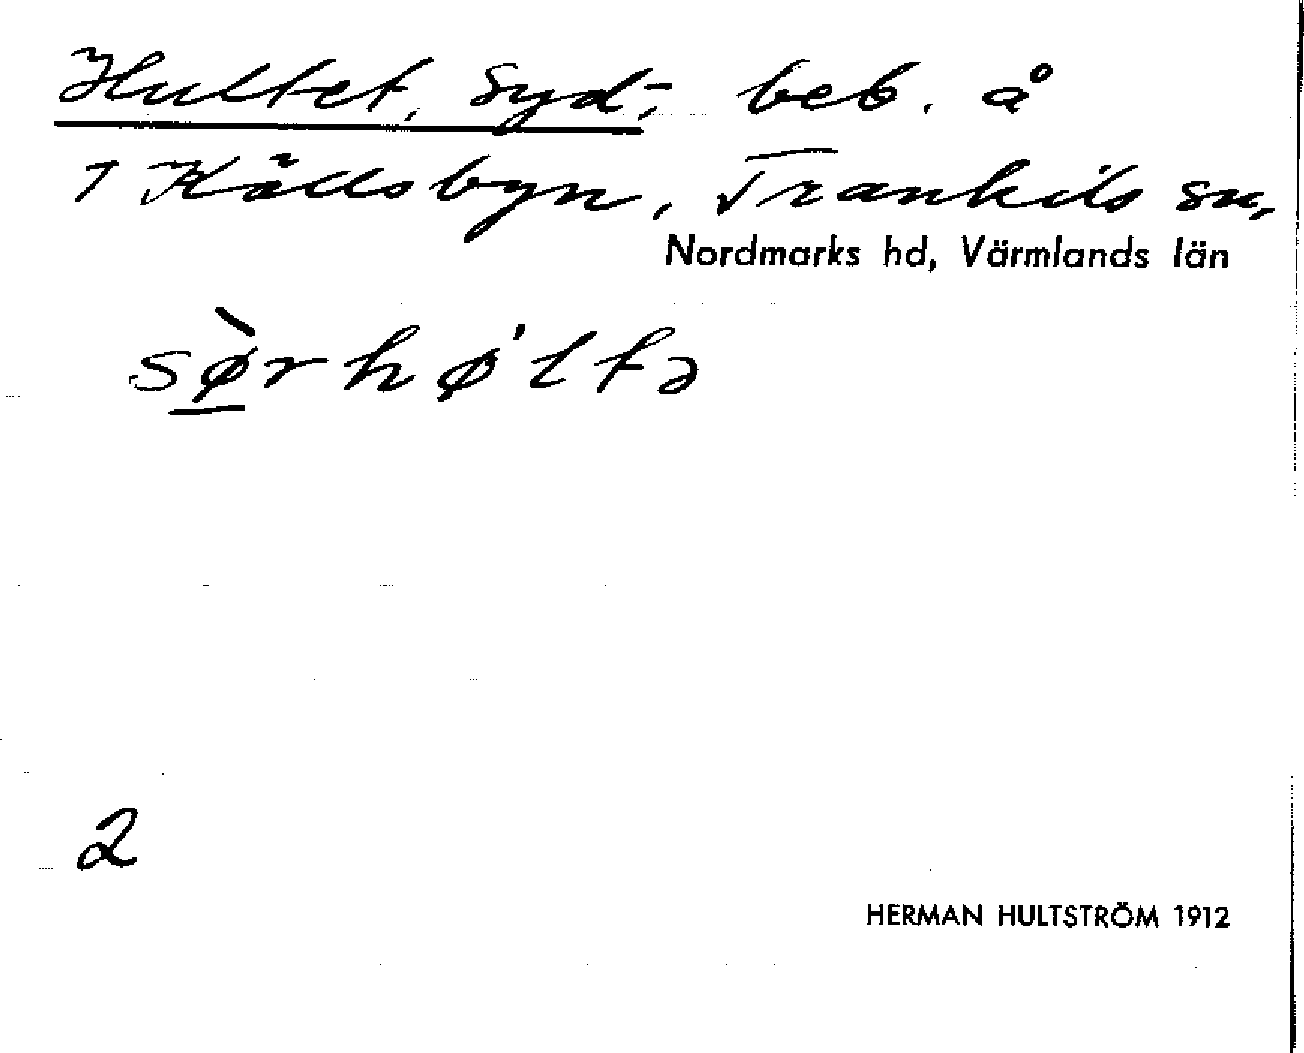 Hultet, Syd-, beb. å
1 Källsbyn, Trankils sn,
Nordmarks hd, Värmlands län
sø̀rhø'ltə
2
HERMAN HULTSTRÖM 1912